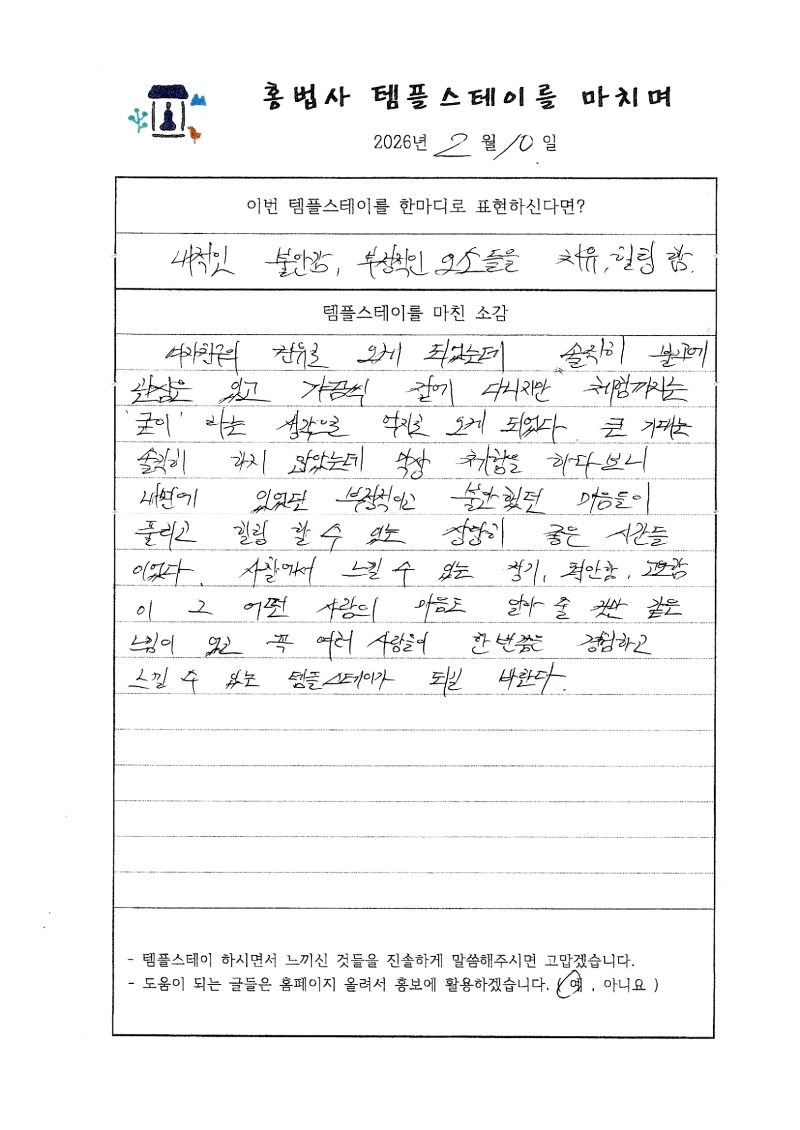 홍법사 템플스테이를 마치며
2026년 2월 10일
이번 템플스테이를 한마디로 표현하신다면?
내적인 불안감, 부정적인 요소들을 치유, 힐링 함.
템플스테이를 마친 소감
여자친구의 권유로 오게 되었는데 솔직히 불교에
관심은 있고 가끔씩 절에 다니지만 체험까지는
'굳이' 라는 생각으로 억지로 오게 되었다. 큰 기대는
솔직히 하지 않았는데 막상 체험을 하다보니
내면에 있었던 부정적이고 불안했던 마음들이
풀리고 힐링 할 수 있는 굉장히 좋은 시간들
이었다. 사찰에서 느낄 수 있는 절기, 편안함, 고요함
이 그 어떤 사람의 마음도 알아 줄 것만 같은
느낌이 있고 꼭 여러 사람들이 한번쯤은 경험하고
느낄 수 있는 템플스테이가 되길 바란다.
- 템플스테이 하시면서 느끼신 것들을 진솔하게 말씀해주시면 고맙겠습니다.
- 도움이 되는 글들은 홈페이지 올려서 홍보에 활용하겠습니다. ( 예 , 아니요 )